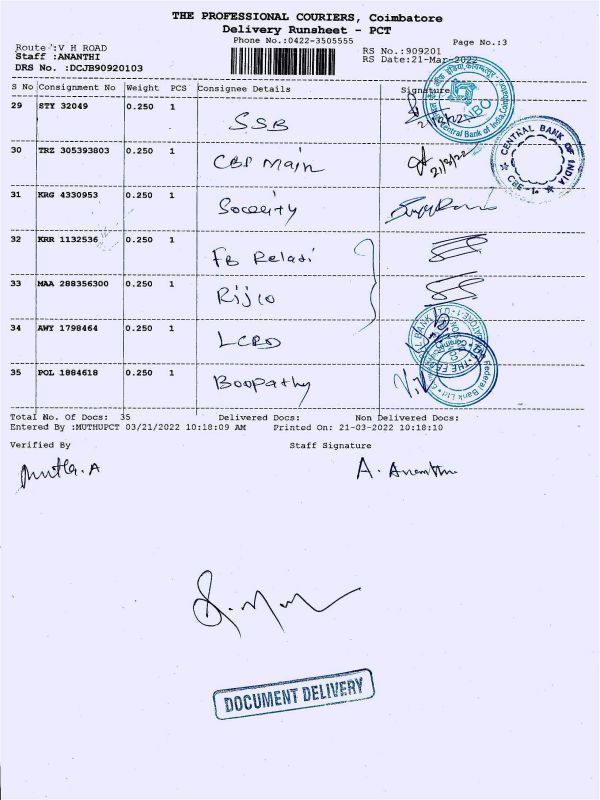 THE PROFESSIONAL COURIERS, Coimbatore
Delivery Runsheet - PCT
Phone No.:0422-3505555
Page No.:3
Route :V H ROAD
RS No.:909201
Staff :ANANTHI
RS Date:21-Mar-2022
DRS No. :DCJB90920103
S No Consignment No Weight PCS Consignee Details Signature
29 STY 32049 0.250 1 SSB 21/3/22
30 TRZ 305393803 0.250 1 CBP Main 21/3/22
31 KRG 4330953 0.250 1
32 KRR 1132536 0.250 1 FB
33 MAA 288356300 0.250 1 Rijio
34 AWY 1798464 0.250 1
35 POL 1884618 0.250 1 Boopathy
Central Bank of India
NBO
CENTRAL BANK OF INDIA
CBE
Federal Bank Ltd
Total No. Of Docs: 35 Delivered Docs: Non Delivered Docs:
Entered By :MUTHUPCT 03/21/2022 10:18:09 AM Printed On: 21-03-2022 10:18:10
Verified By Staff Signature
A. Ananthi
DOCUMENT DELIVERY